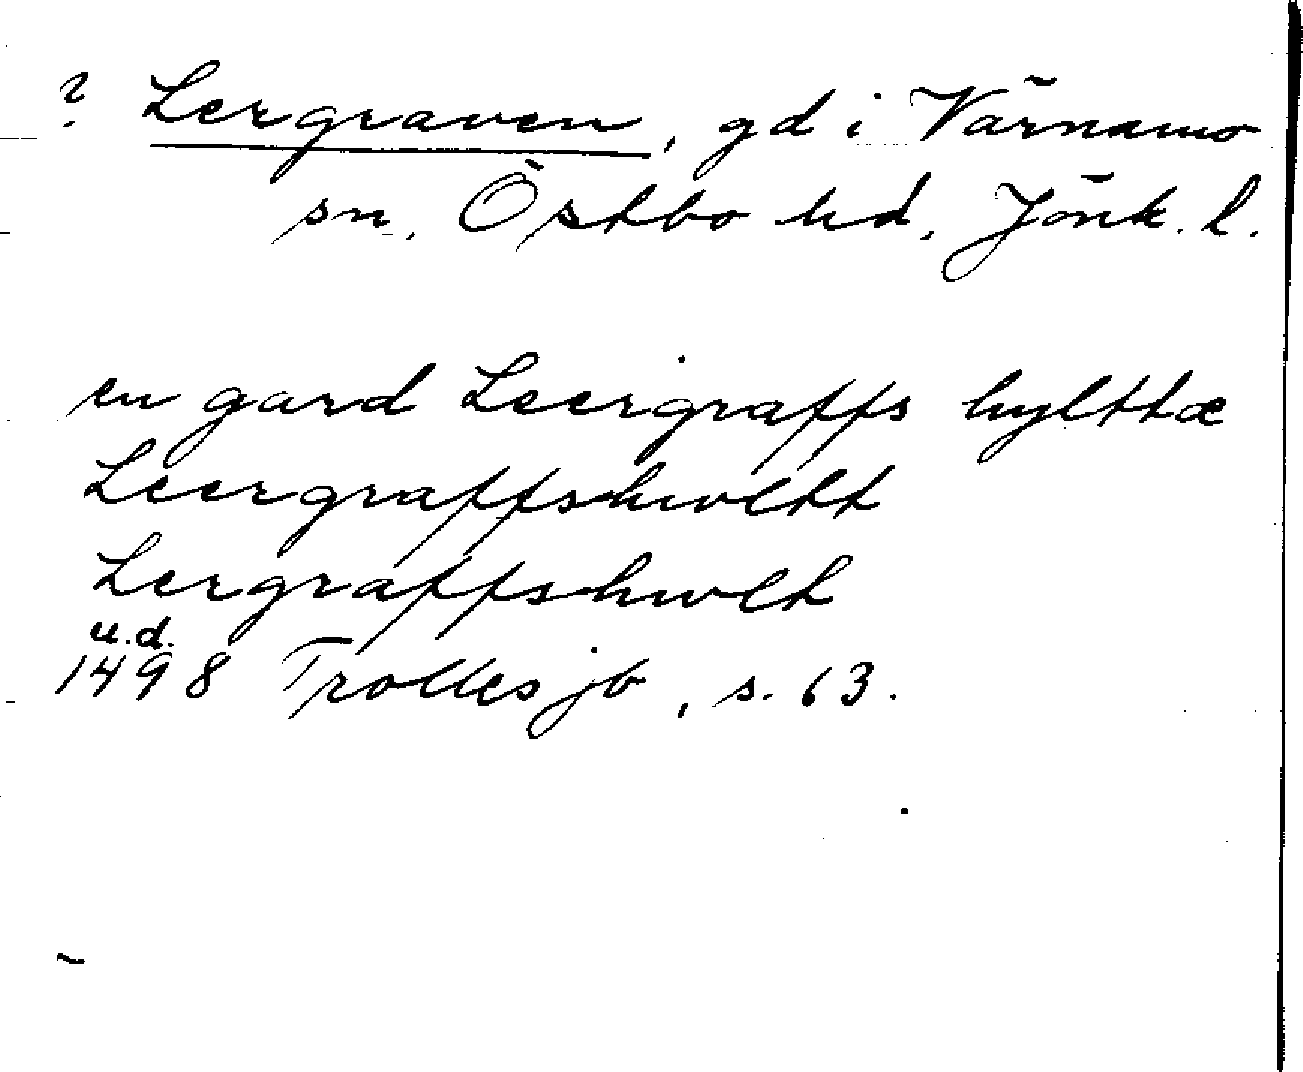 ? Lergraven, gd i Värnamo
sn, Östbo hd, Jönk. l.
en gard Leergraffs hylttæ
Leergraffshwltt
Lergraffshwlt
u.d.
1498 Trollesjb, s. 63.